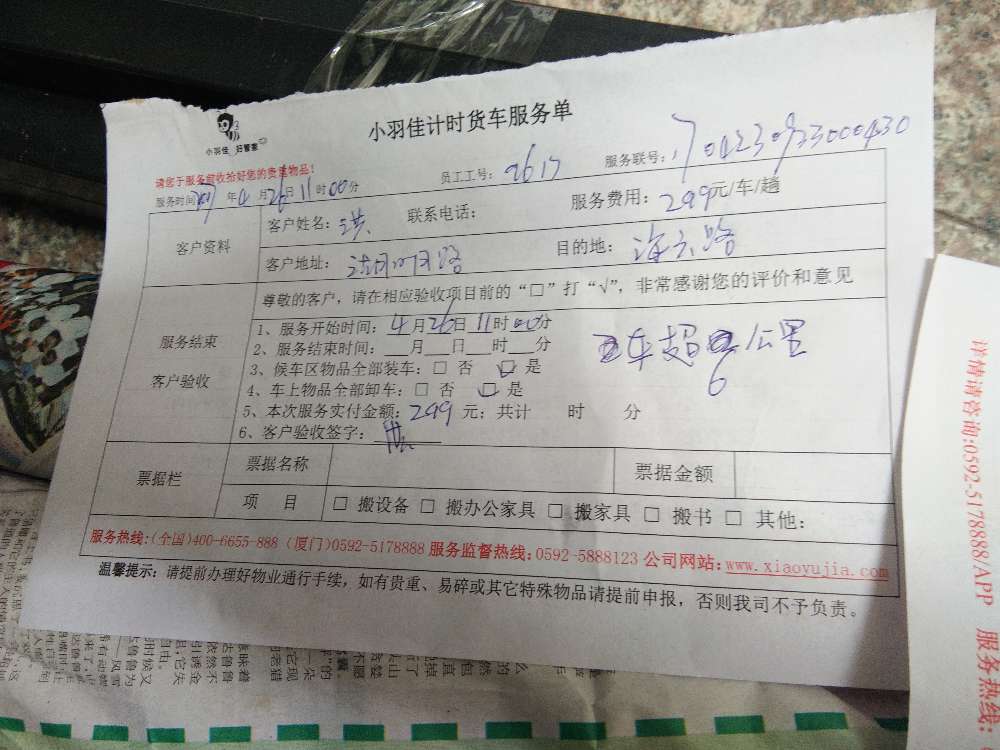 小羽佳计时货车服务单
小羽佳 好管家
请您于服务前收拾好您的贵重物品!
员工工号: 2617 服务联号: 170423093300430
服务时间2017年4月26日11时00分
客户资料 客户姓名: 洪 联系电话: 服务费用: 299元/车/趟
客户地址: 湖明路 目的地: 海天路
尊敬的客户,请在相应验收项目前的“□”打“√”,非常感谢您的评价和意见
服务结束
客户验收
1、服务开始时间: 4月26日11时00分
2、服务结束时间: ___月___日___时___分
车超 6 公里
3、候车区物品全部装车: □ 否 ☑ 是
4、车上物品全部卸车: □ 否 ☑ 是
5、本次服务实付金额: 299 元; 共计 时 分
6、客户验收签字: 洪
票据栏 票据名称 票据金额
项 目 □ 搬设备 □ 搬办公家具 □ 搬家具 □ 搬书 □ 其他:
服务热线:(全国)400-6655-888 (厦门)0592-5178888 服务监督热线:0592-5888123 公司网站:www.xiaoyujia.com
温馨提示: 请提前办理好物业通行手续, 如有贵重、易碎或其它特殊物品请提前申报, 否则我司不予负责。
详情请咨询:0592-5178888/APP 服务热线: